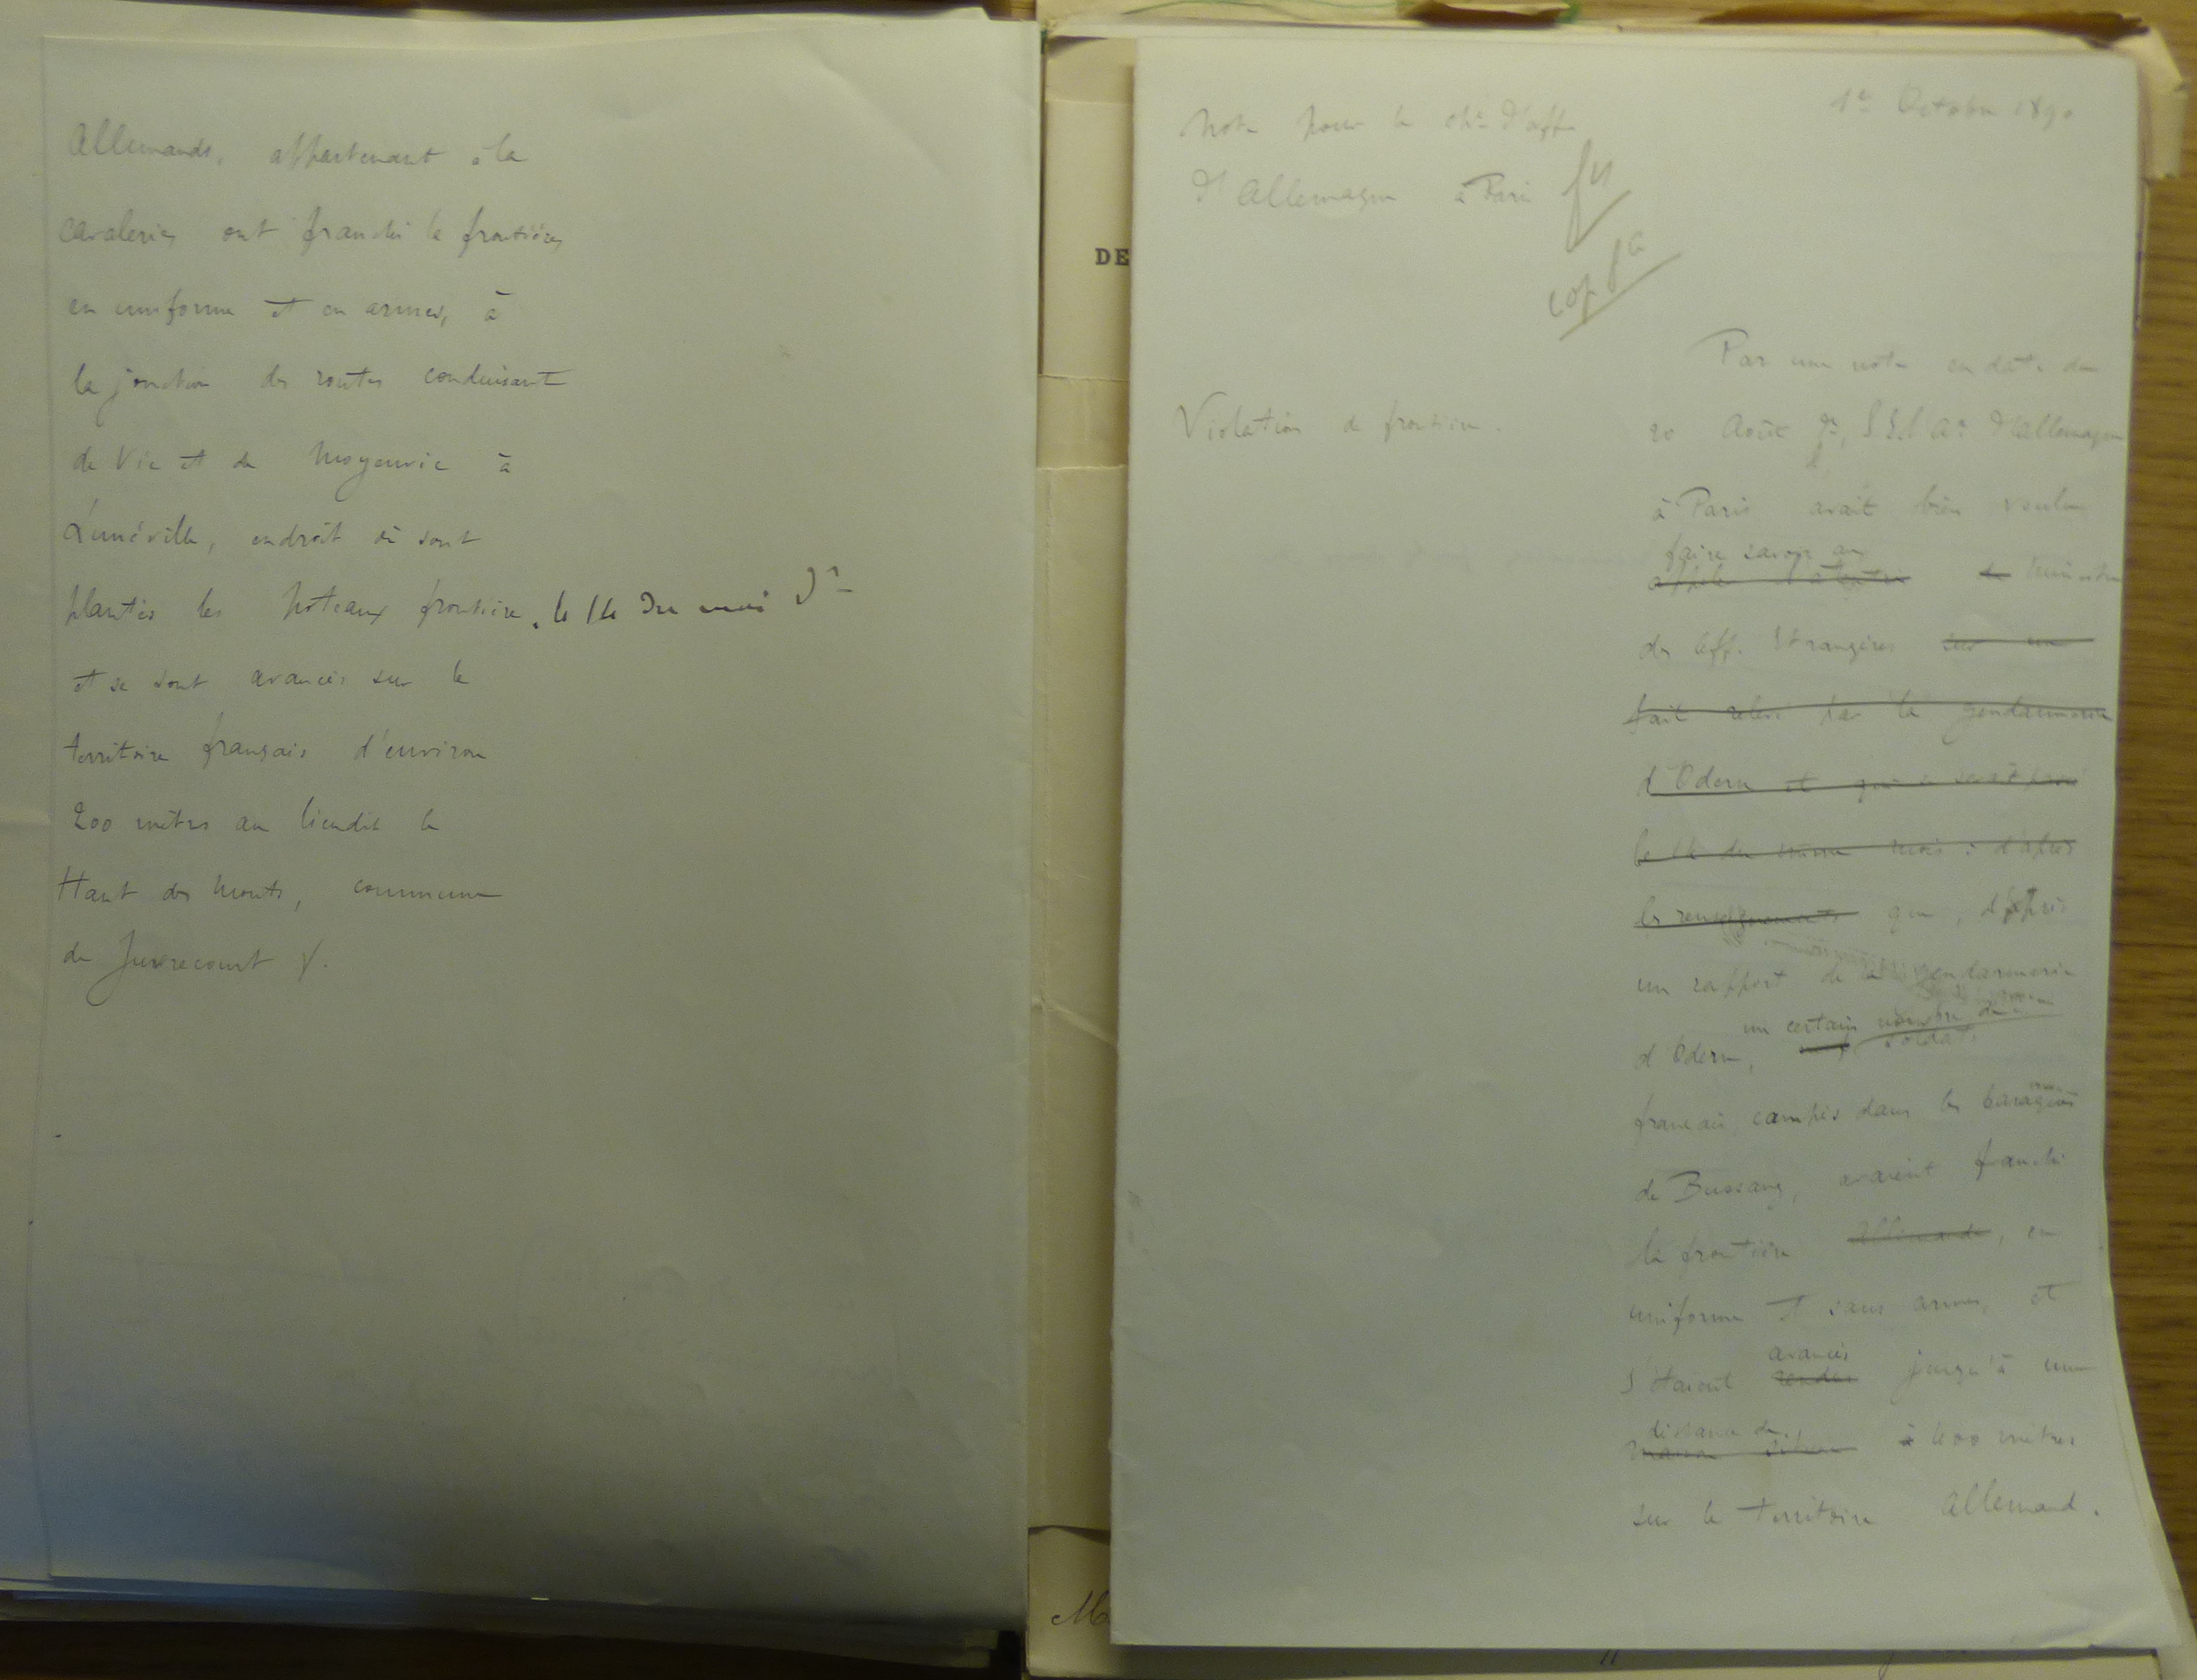 Allemands, appartenant à la
cavalerie, ont franchi la frontière,
en uniforme et en armes, à
la jonction des routes conduisant
de Vic et de Moyenvic à
Lunéville, endroit où sont
plantés les poteaux frontière, le 14 du mois dr
et se sont avancés sur le
territoire français d'environ
200 mètres au lieudit le
Haut des Monts, commune
de Juvrecourt
DE
Note pour le ché d'aff
d'Allemagne à Paris
1er Octobre 1890
Violation de frontière.
Par une note en date du
20 Août dr, d'Allemagne
à Paris avait bien voulu
faire savoir au
Ministre
des Aff. Etrangères sur un
fait relevé par la gendarmerie
d'Odern et qui se serait
le 14 du même mois : d'après
les renseignements que, d'après
un rapport de la gendarmerie
un certain nombre de
d'Odern, soldats
français campés dans les
de Bussang, avaient franchi
la frontière allemande, en
uniforme et sans armes, et
avancés
s'étaient rendus jusqu'à une
distance de
à 400 mètres
sur le territoire Allemand.